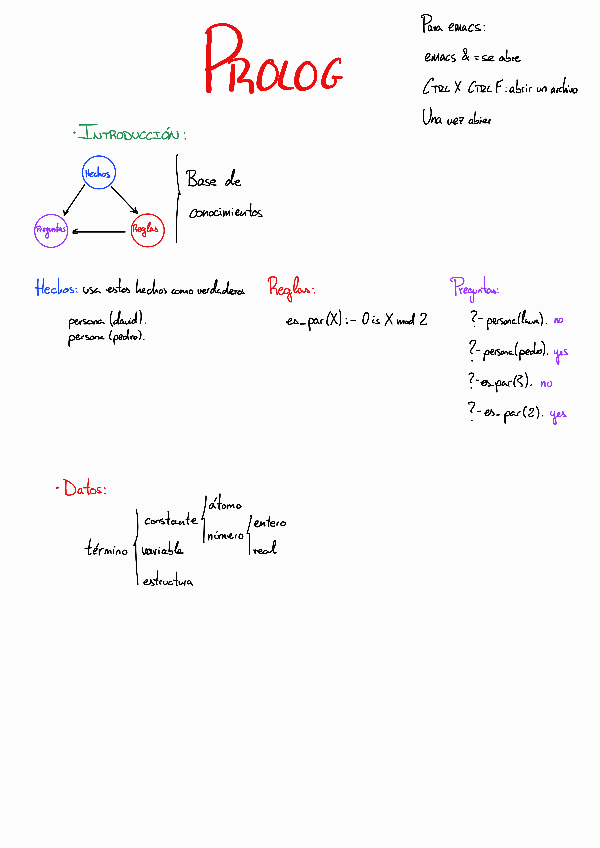 PROLOG
Para emacs:
emacs & = se abre
CTRL X CTRL F: abrir un archivo
Una vez abier
· INTRODUCCIÓN:
Hechos
Preguntas
Reglas
Base de
conocimientos
Hechos: usa estos hechos como verdaderos
persona (david).
persona (pedro).
Reglas:
es_par(X) :- 0 is X mod 2
Preguntas:
?- persona(laura). no
?- persona(pedro). yes
?- es_par(3). no
?- es_par(2). yes
· Datos:
término
constante
átomo
número
entero
real
variable
estructura